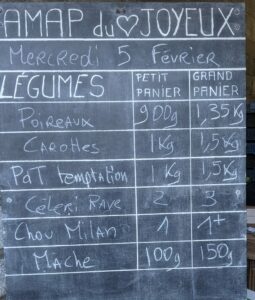 AMAP du ♡ JOYEUX
Mercredi 5 Février
LÉGUMES PETIT PANIER GRAND PANIER
Poireaux 900g 1,35Kg
Carottes 1Kg 1,5Kg
PdT temptation 1Kg 1,5Kg
Céleri Rave 2 3
Chou Milan 1 1+
Mache 100g 150g